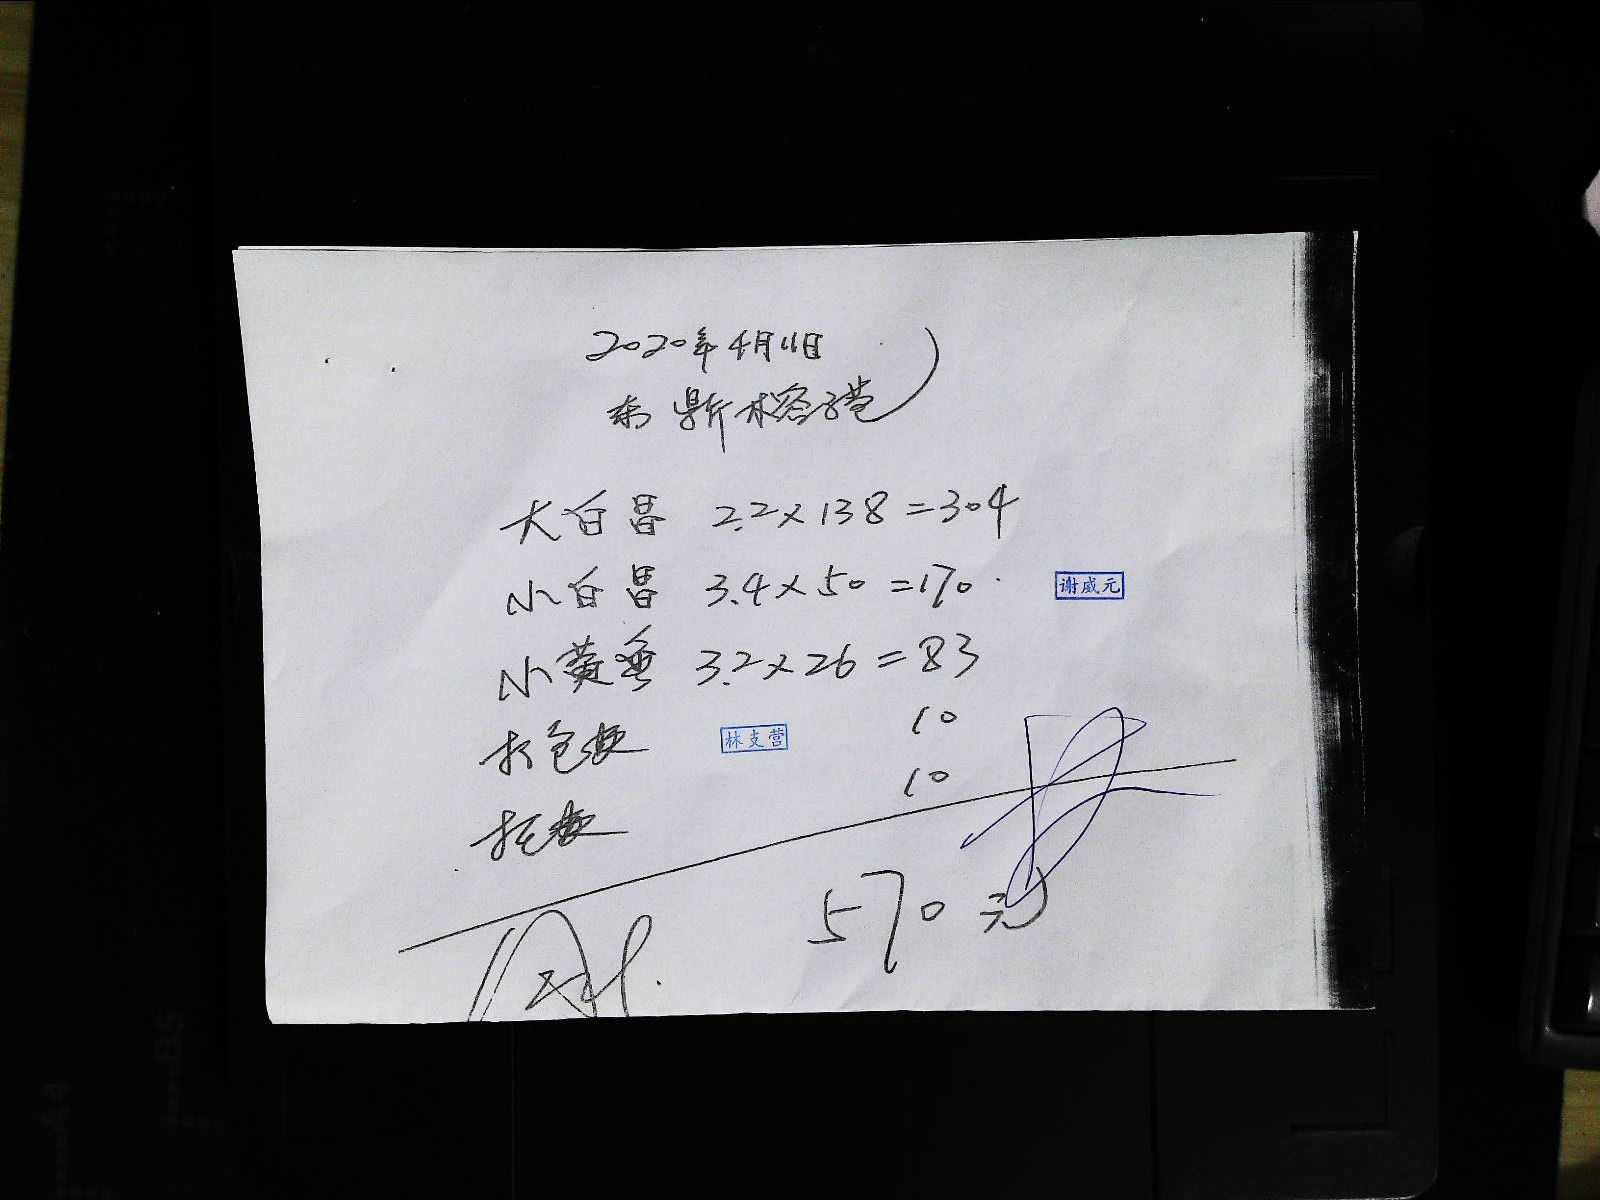 2020年4月11日
大白昌 2.2×138=304
小白昌 3.4×50=170
谢威元
小黄 3.2×26=83
打包 10
林支营
10
570元
A4
B5